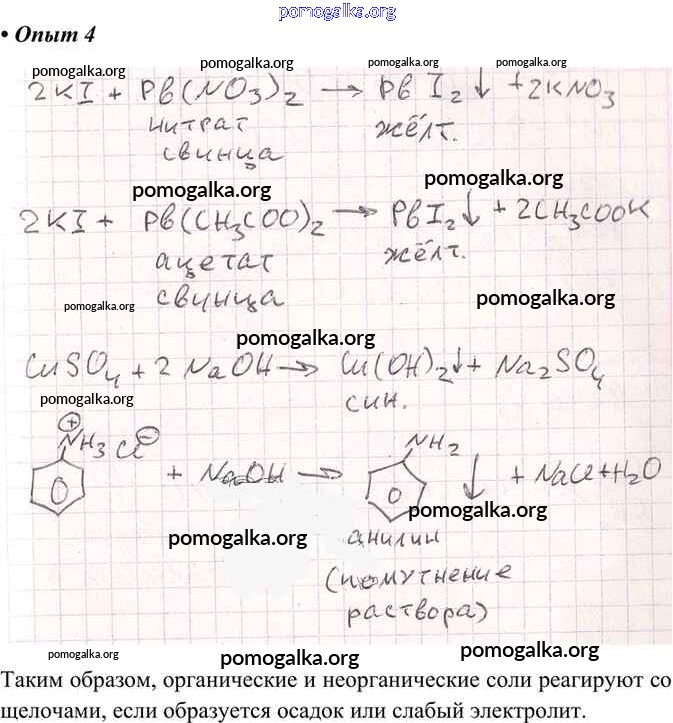 pomogalka.org
• Опыт 4
pomogalka.org pomogalka.org pomogalka.org pomogalka.org
2KI + Pb(NO3)2 → PbI2↓ + 2KNO3
нитрат жёлт.
свинца
pomogalka.org pomogalka.org
2KI + Pb(CH3COO)2 → PbI2↓ + 2CH3COOK
ацетат жёлт.
свинца
pomogalka.org pomogalka.org
pomogalka.org
CuSO4 + 2NaOH → Cu(OH)2↓ + Na2SO4
син.
pomogalka.org pomogalka.org
⊕ NH3 Cl ⊖ + NaOH → NH2 ↓ + NaCl + H2O
pomogalka.org
pomogalka.org
анилин
(помутнение
раствора)
pomogalka.org pomogalka.org pomogalka.org
Таким образом, органические и неорганические соли реагируют со
щелочами, если образуется осадок или слабый электролит.